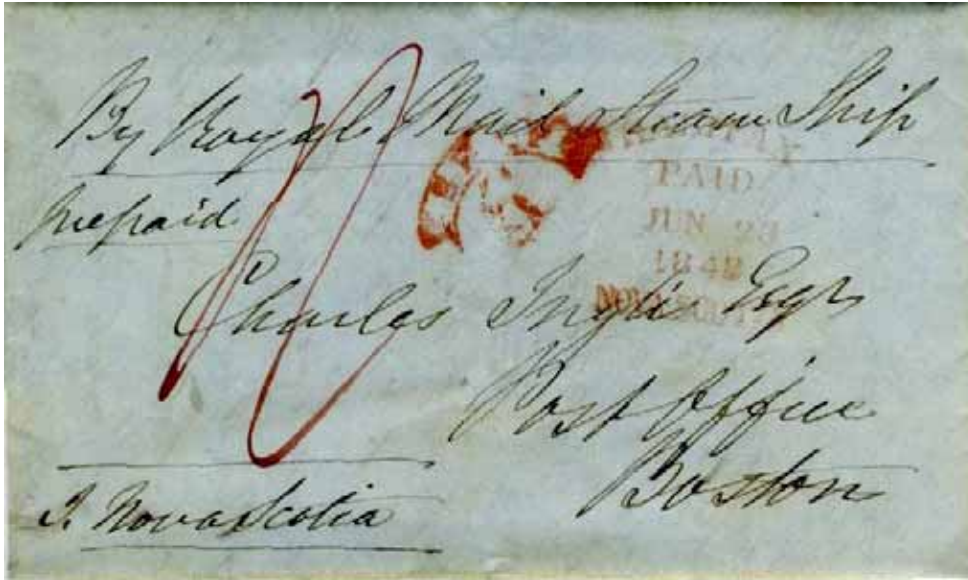 By Royal Mail Steam Ship
PAID
prepaid
JUN 23
184
Charles Inglis Esqr
Post Office
Boston
Nova Scotia